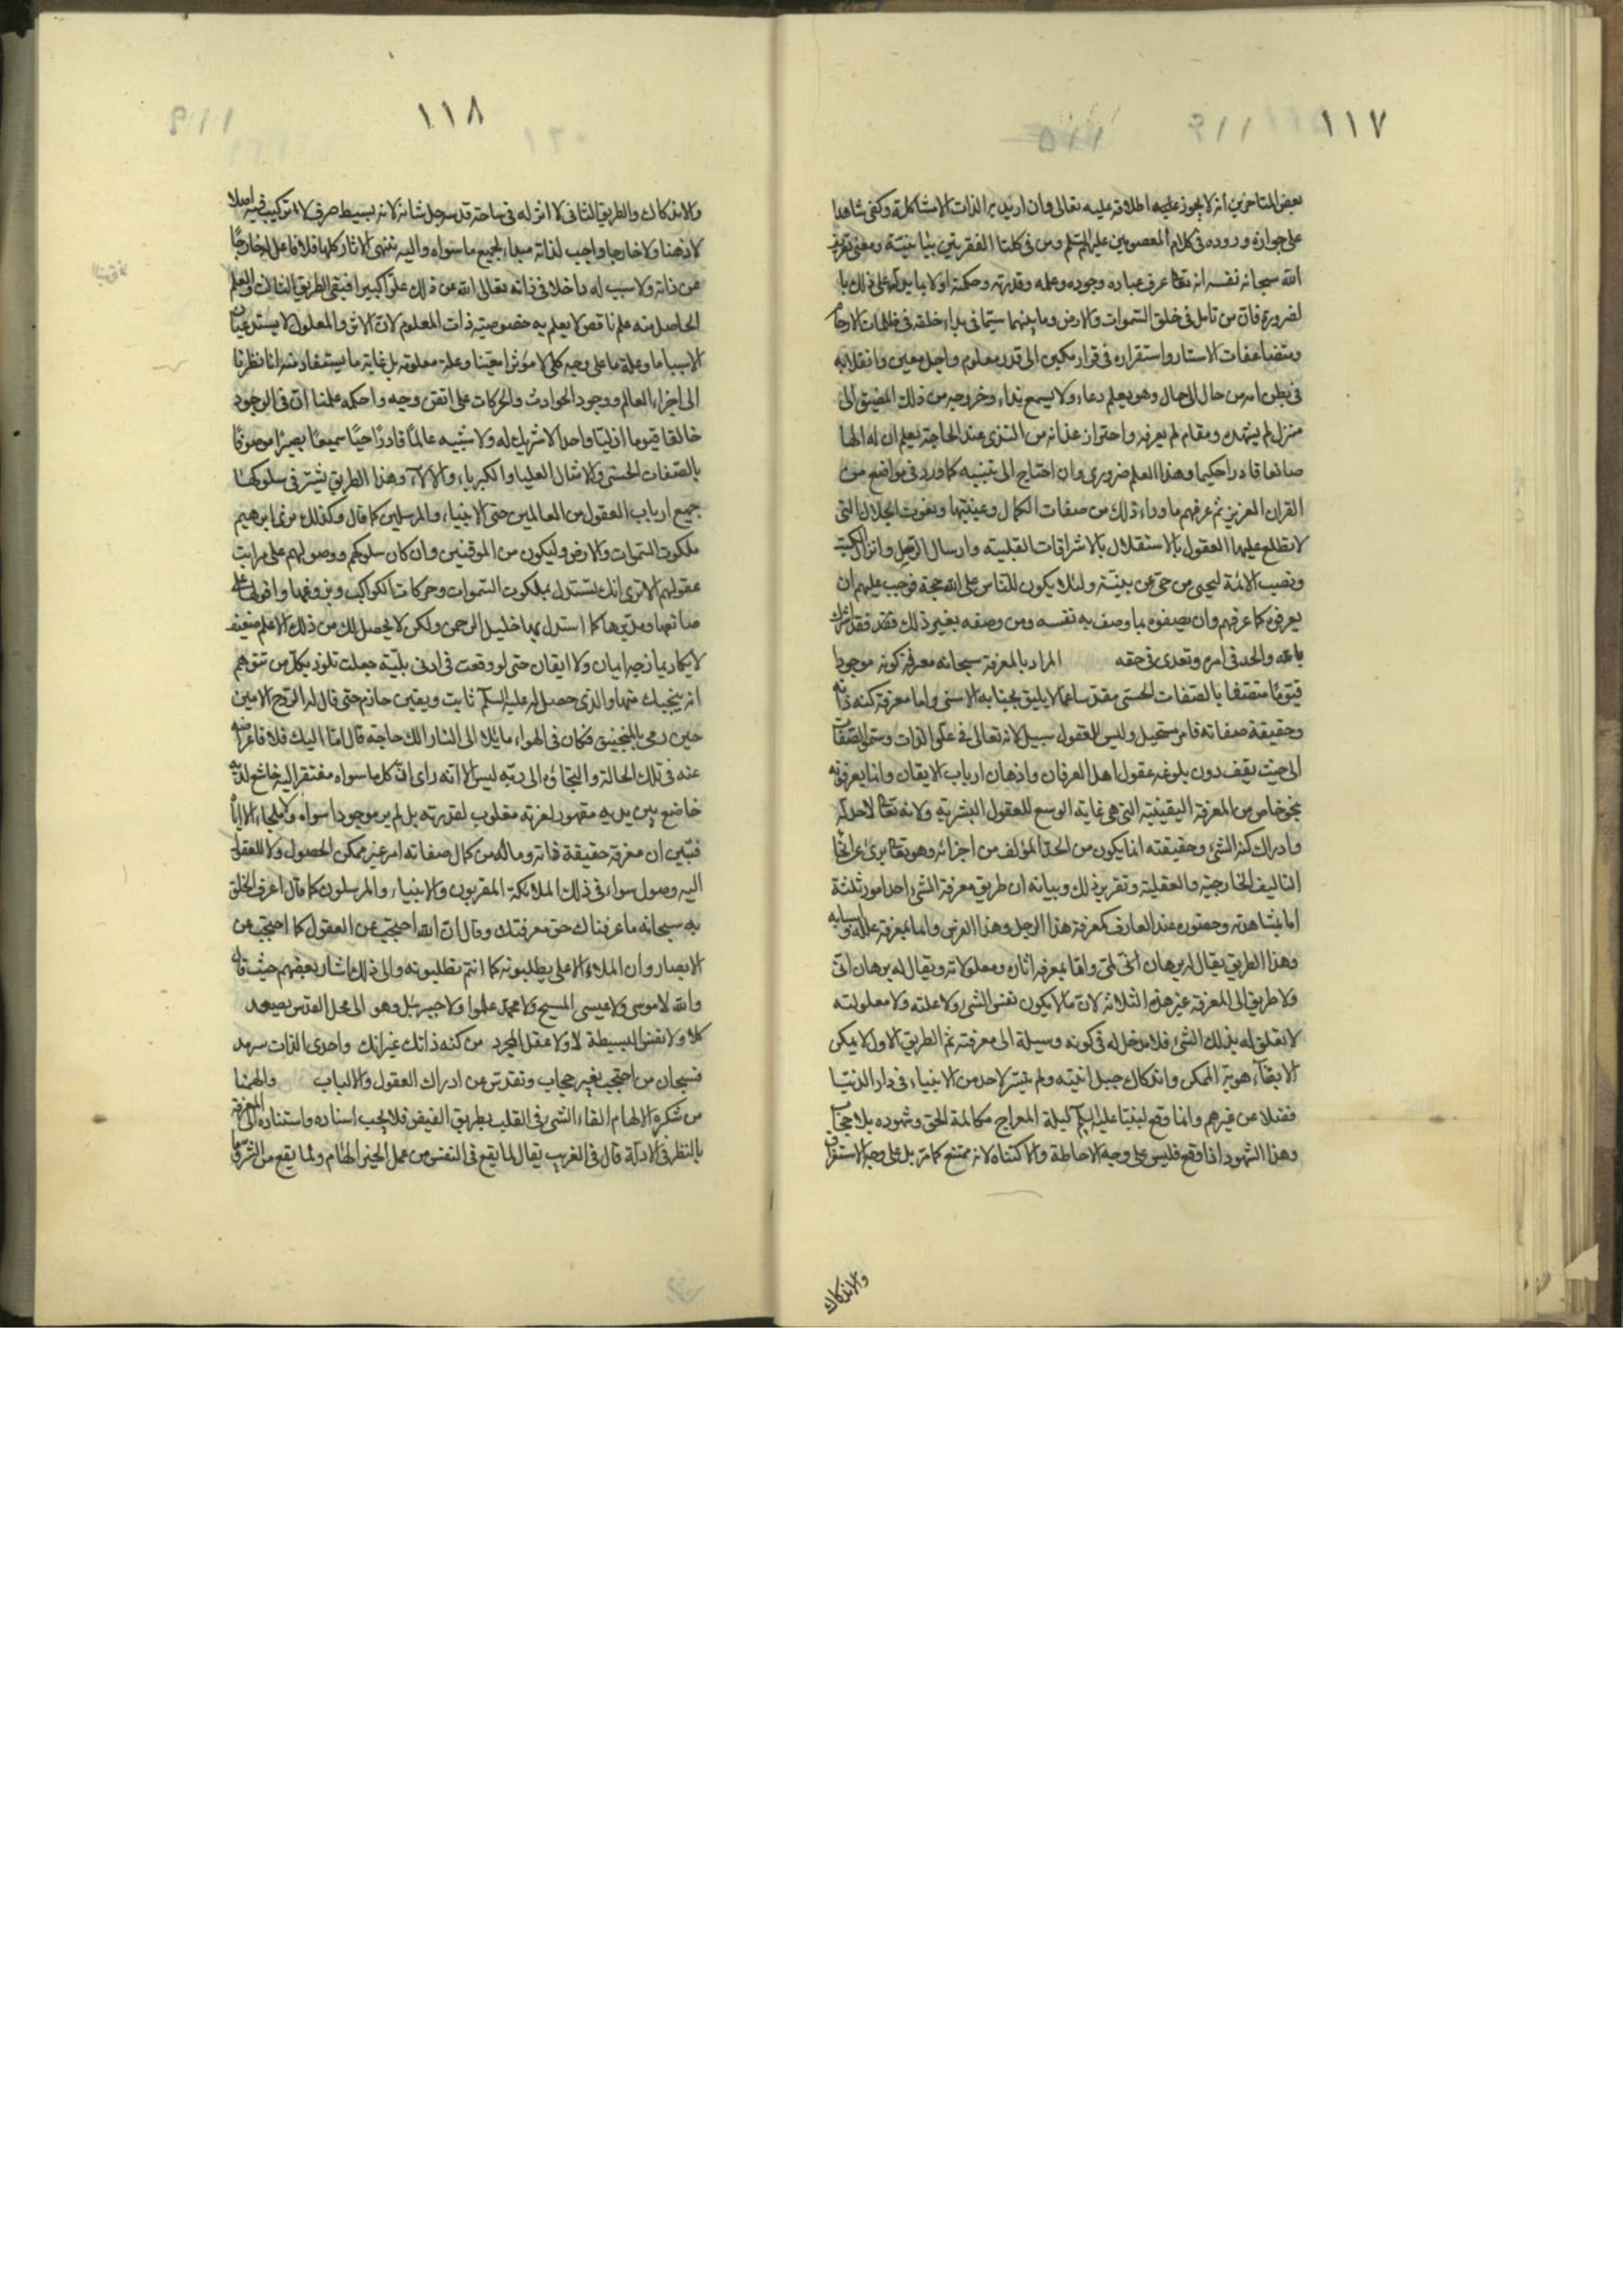 ١١٧
بعض المتاخرين انه لا يجوز عليه اطلاقه عليه تعالى وان اريد به الذات الا مشاكلة وكفى شاهدا
على جوازه وروده فى كلام المعصومين عليهم السلم ومن فى كلتا الفقرتين بيانية ومعنى تعريف
الله سبحانه نفسه انه تعا عرف عباده وجوده وعلمه وقدرته وحكمته اولا بما يدلهم على ذلك با
لضرورة فان من تامل فى خلق السموات والارض وما بينهما سيما فى بداء خلقه فى ظلمات الارحام
ومتضاعفات الاستار واستقراره فى قرار مكين الى قدر معلوم واجل معين وانقلابه
فى بطن امه من حال الى حال وهو يعلم دعاء ولا يسمع نداء وخروجه من ذلك المضيق الى
منزل لم يشهده ومقام لم يعرفه واحتراز غذائه من الثدى عند الحاجة يعلم ان له الها
صانعا قادرا حكيما وهذا العلم ضرورى وان احتاج الى تنبيه كما ورد فى مواضع من
القران العزيز ثم عرفهم ما وراء ذلك من صفات الكمال وعينيتها ونعوت الجلال التى
لا تطلع عليها العقول بالاستقلال بالاشراقات القلبية وارسال الرسل وانزال الكتب
ونصب الائمة ليحيى من حى عن بينة ولئلا يكون للناس على الله حجة فوجب عليهم ان
يعرفوه كما عرفهم وان يصفوه بما وصف به نفسه ومن وصفه بغير ذلك فقد اشرك
بالله والحد فى امره وتعدى فى حقه المراد بالمعرفة سبحانه معرفة كونه موجودا
قيوما متصفا بالصفات الحسنى مقدسا عما لا يليق بجنابه الاسنى واما معرفة كنه ذاته
وحقيقة صفاته فامر مستحيل وليس للعقول سبيل لانه تعالى فى علو الذات وسمو الصفات
الى حيث يقف دون بلوغه عقول اهل العرفان واذهان ارباب الايقان وانما يعرفونه
بنحو خاص من المعرفة اليقينية التى هى غاية الوسع للعقول البشرية ولانه تعا لا حد له
وادراك كنه الشئ وحقيقته انما يكون من الحد المؤلف من اجزائه وهو تعا برئ عن انحا
التاليف الخارجية والعقلية وتقرير ذلك وبيانه ان طريق معرفة الشئ احد امور ثلثة
اما بمشاهدته وحضوره عند العارف كمعرفة هذا الرجل وهذا الفرس واما بمعرفة علله واسبابه
وهذا الطريق يقال له برهان لمى واما بمعرفة اثاره ومعلولاته ويقال له برهان انى
ولا طريق الى المعرفة غير هذه الثلاثة لان ما لا يكون نفس الشئ ولا علته ولا معلولته
لا تعلق له بذلك الشئ فلا مدخل له فى كونه وسيلة الى معرفته ثم الطريق الاول لا يمكن
الا بفناء هوية الممكن واندكاك جبل انيته ولم يتيسر لاحد من الانبياء فى دار الدنيا
فضلا عن غيرهم وانما وقع لنبينا عليه السلم ليلة المعراج مكالمة الحق وشهوده بلا حجاب
وهذا الشهود اذا وقع فليس على وجه الاحاطة والاكتناه لانه ممتنع كما مر بل على وجه الاستغراق
والاندكاك
١١٨
والاندكاك والطريق الثانى لا اثر له فى ساحة قدسه جل شانه لانه بسيط صرف لا تركيب فيه اصلا
لا ذهنا ولا خارجا واجب لذاته مبداء لجميع ما سواه واليه تنتهى الاثار كلها فلا فاعل له خارجا
عن ذاته ولا سبب له داخلا فى ذاته تعالى الله عن ذلك علوا كبيرا فبقى الطريق الثالث والعلم
الحاصل منه علم ناقص لا يعلم به خصوصية ذات المعلوم لان الاثر والمعلول لا يستدعيان
الا سببا ما وعلة ما على وجه كلى لا مؤثرا معينا وعلة معلومة بل غاية ما يستفاد منه انا نظرنا
الى اجزاء العالم ووجود الحوادث والحركات على اتقن وجه واحكمه علمنا ان فى الوجود
خالقا قيوما ازليا واحدا لا شريك له ولا شبيه عالما قادرا حيا سميعا بصيرا موصوفا
بالصفات الحسنى والامثال العليا والكبرياء والالاء وهذا الطريق يشترك فى سلوكها
جميع ارباب العقول من العالمين حتى الانبياء والمرسلين كما قال وكذلك نرى ابرهيم
ملكوت السموات والارض وليكون من الموقنين وان كان سلوكهم ووصولهم على مراتب
عقولهم الا ترى انك تستدل بملكوت السموات وحركات الكواكب وبزوغها وافولها على
صانعها ومدبرها كما استدل بها خليل الرحمن ولكن لا يحصل لك من ذلك الا علم ضعيف
لا يكاد يمازجه ايمان ولا ايقان حتى لو وقعت فى ادنى بلية جعلت تلوذ بكل من تتوهم
انه ينجيك منها والذى حصل له عليه السلم ثابت ويقين جازم حتى قال له الروح الامين
حين رمى بالمنجنيق فكان فى الهواء مائلا الى النار الك حاجة قال اما اليك فلا فاعراضه
عنه فى تلك الحالة والتجاؤه الى ربه ليس الا انه راى ان كل ما سواه مفتقر اليه خاشع لديه
خاضع بين يديه مقهور لعزته مغلوب لقدرته بل لم ير موجودا سواه ولا ملجاء الا اياه
فتبين ان معرفة حقيقة ذاته وما له من كمال صفاته امر غير ممكن الحصول ولا للعقول
اليه وصول سواء فى ذلك الملائكة المقربون والانبياء والمرسلون كما قال اعرف الخلق
به سبحانه ما عرفناك حق معرفتك وقال ان الله احتجب عن العقول كما احتجب عن
الابصار وان الملاء الاعلى يطلبونه كما انتم تطلبونه والى ذلك اشار بعضهم حيث قال
والله لا موسى ولا عيسى المسيح ولا محمد علموا ولا جبرئيل وهو الى محل القدس يصعد
كلا ولا نفس البسيطة لا ولا عقل المجرد من كنه ذاتك غير انك واحدى الذات سرمد
فسبحان من احتجب بغير حجاب وتقدس عن ادراك العقول والالباب والهمنا
من شكره الالهام القاء الشئ فى القلب بطريق الفيض فلا يجب اسناده واستناده الى المعرفة
بالنظر فى الادلة قال فى الغريب يقال لما يقع فى النفس من عمل الخير الهام ولما يقع من الشر